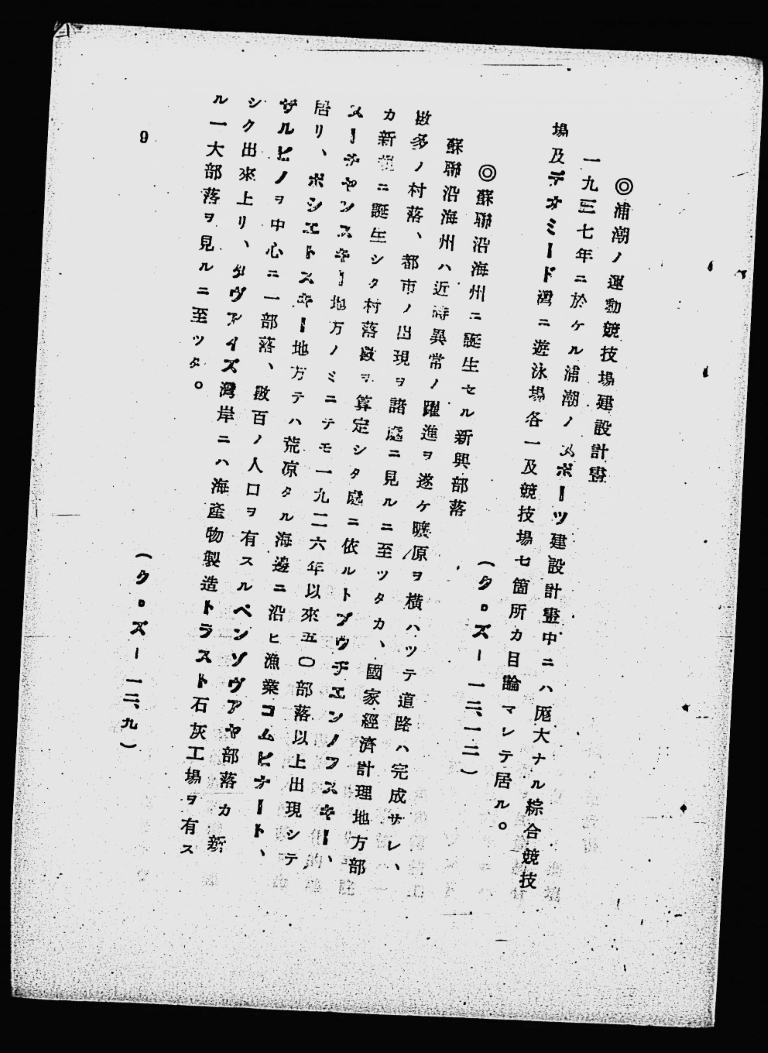 ◎浦潮ノ運動競技場建設計畫
一九三七年ニ於ケル浦潮ノスポーツ建設計畫中ニハ厖大ナル綜合競技
場及デオミード灣ニ遊泳場各一及競技場七箇所カ目論マレテ居ル。
(ク。ズー一二、一二)
◎蘇聯沿海州ニ誕生セル新興部落
蘇聯沿海州ハ近時異常ノ躍進ヲ遂ケ曠原ヲ横ハツテ道路ハ完成サレ、
數多ノ村落、都市ノ出現ヲ諸處ニ見ルニ至ツタカ、國家經濟計理地方部
カ新規ニ誕生シタ村落數ヲ算定シタ處ニ依ルトブウヂエンノフスキー、
スーチヤンスキー地方ノミニテモ一九二六年以來五〇部落以上出現シテ
居リ、ポシエトスキー地方テハ荒凉タル海邊ニ沿ヒ漁業コムビナート、
ザルビノヲ中心ニ一部落、數百ノ人口ヲ有スルペンゾヴアヤ部落カ新
シク出來上リ、タヴアイズ灣岸ニハ海産物製造トラスト石灰工場ヲ有ス
ル一大部落ヲ見ルニ至ツタ。
(ク。ズー一二、九)
9